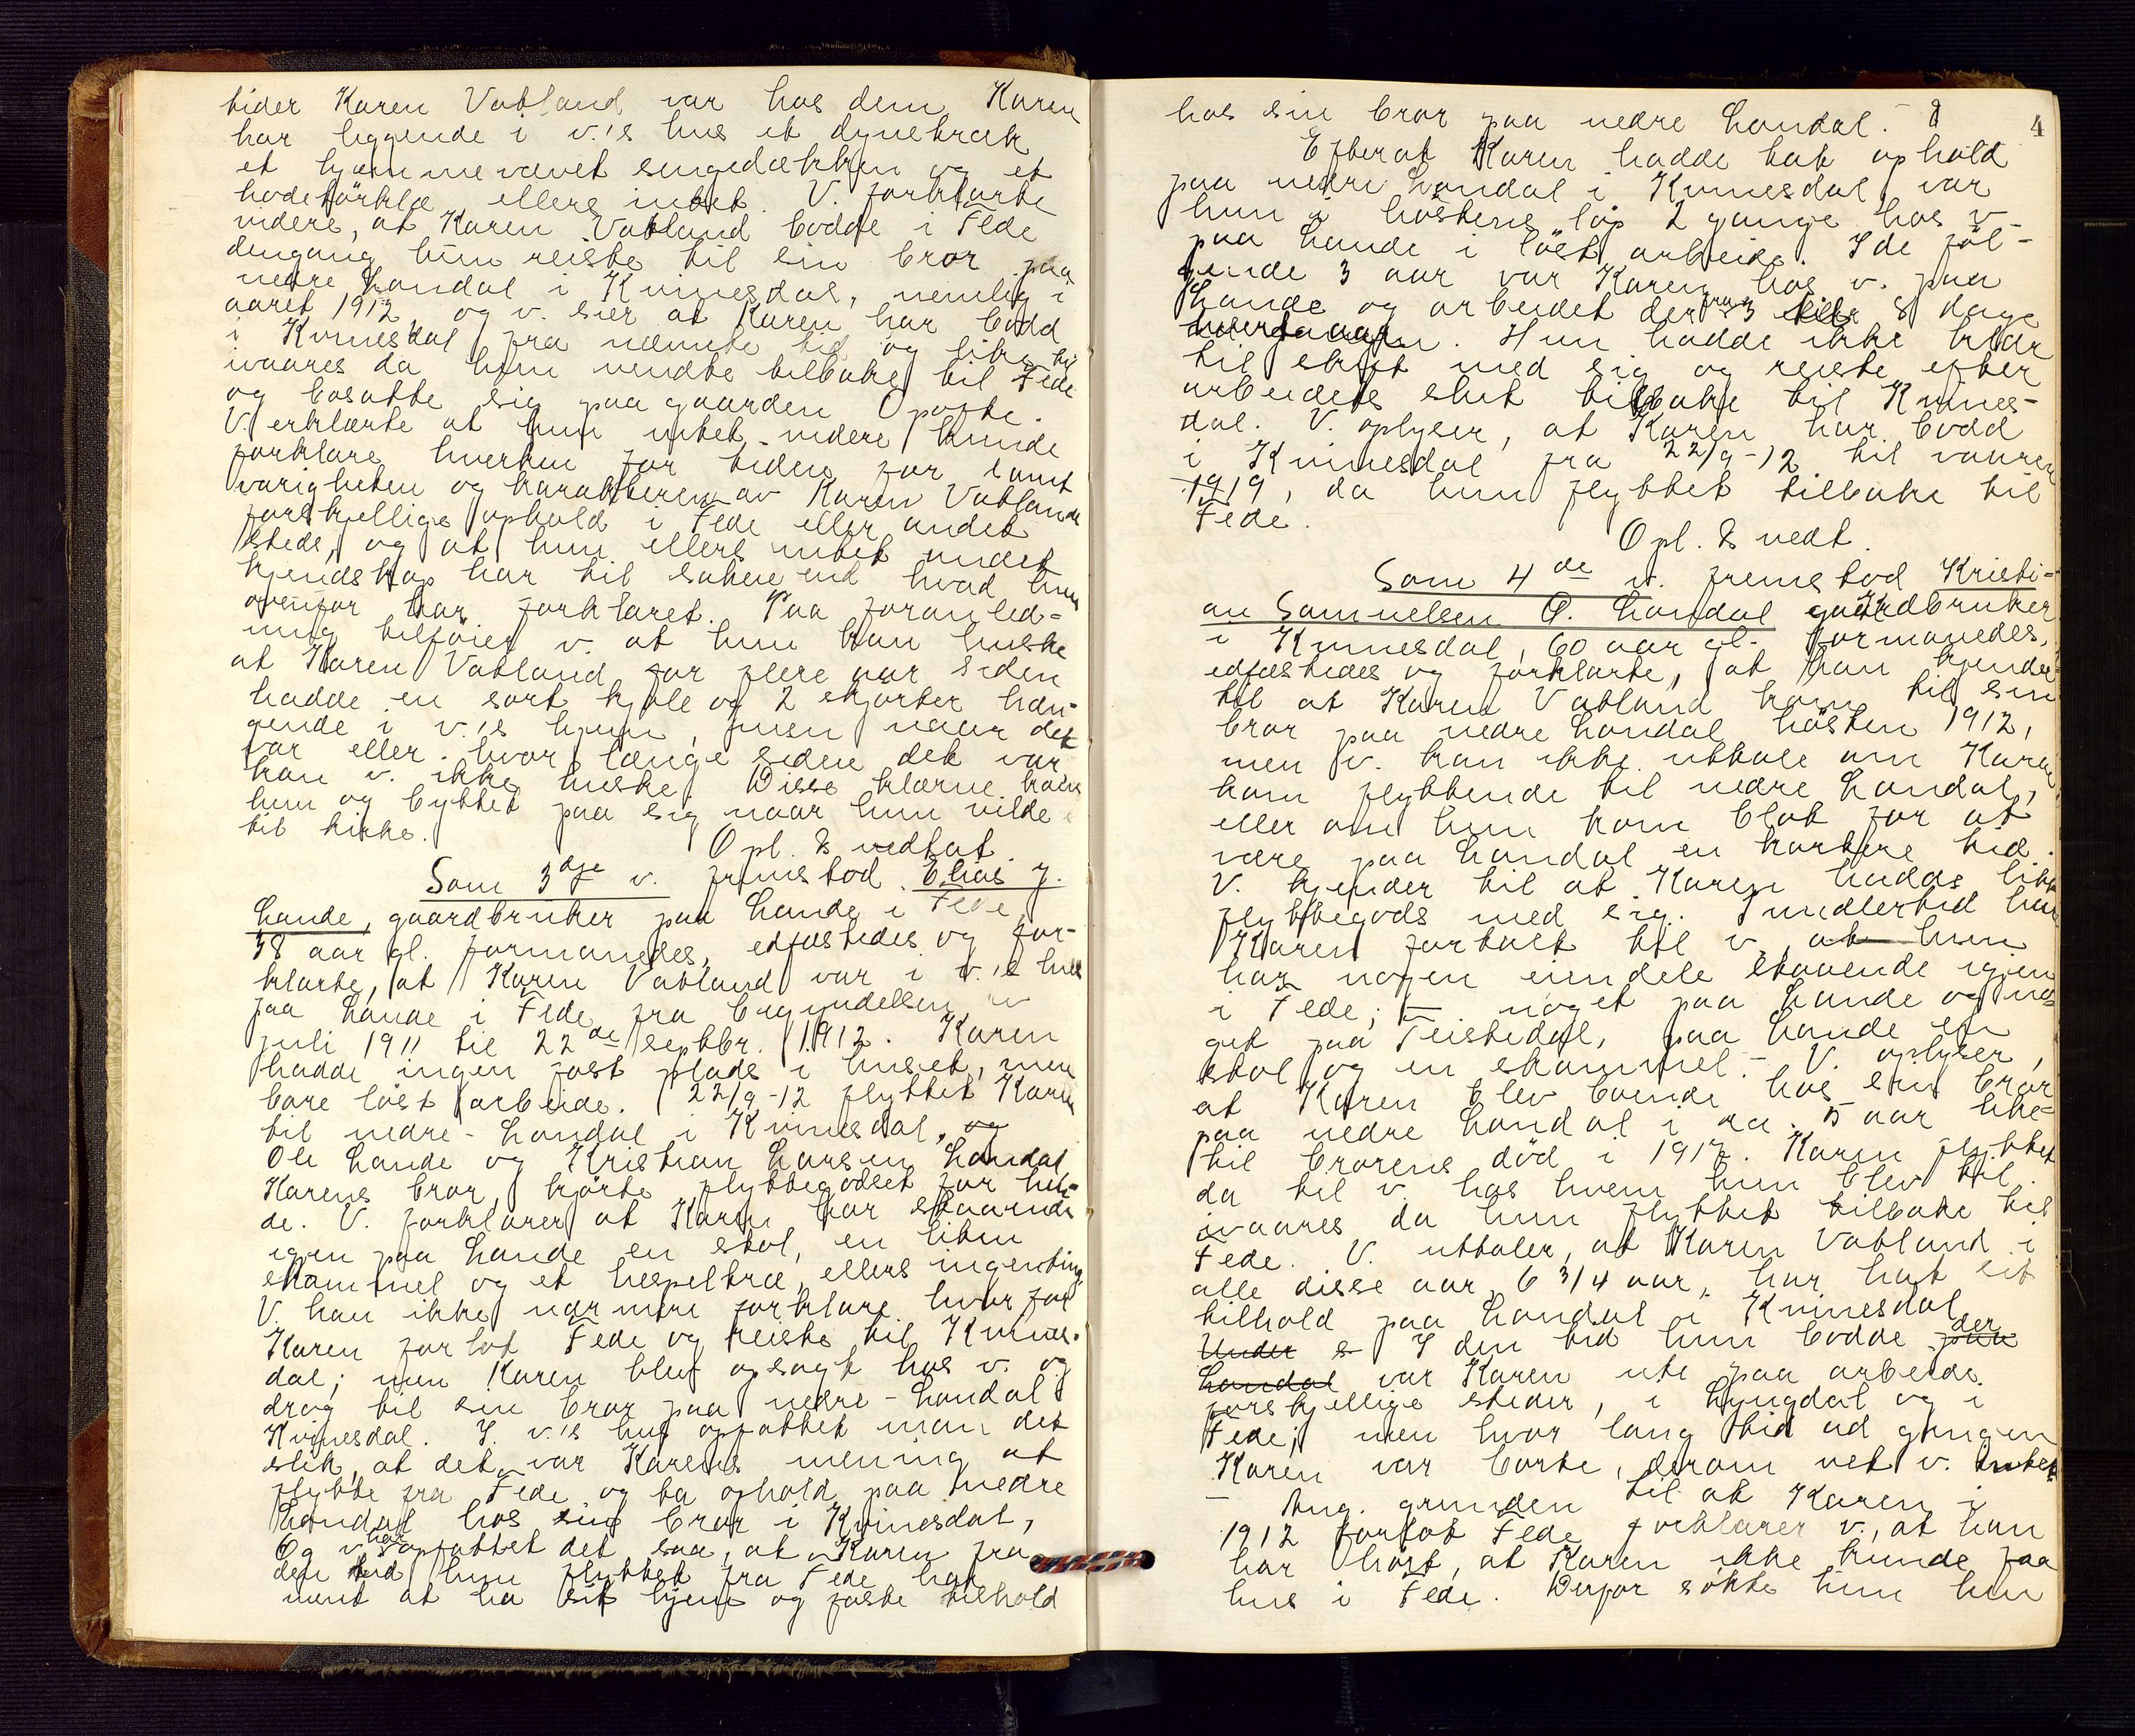 tider Karen Vatland var hos dem Karen
har liggende i v.'s hus et dynetræk
et hjemmevævet sengedækken og et
hodetörklæ, ellers intet. V. forklarte
videre, at Karen Vatland bodde i Fede
dengang hun reiste til sin bror paa
nedre Londal i Kvinesdal, nemlig i
aaret 1912, og v. sier at Karen har bodd
i Kvinesdal fra nævnte tid og like til
ivaares da hun vendte tilbake til Fede
og bosatte sig paa gaarden Opofte.
V. erklærte at hun intet videre kunde
forklare hverken for tiden, for samt
varigheten og karakteren av Karen Vatlands
forskjellige ophold i Fede eller andet
steds, og at hun ellers intet andet
kjendskap har til saken end hvad hun
ovenfor har forklaret. Paa foranled-
ning tilföier v. at hun kan huske
at Karen Vatland for flere aar siden
hadde en sort kjole og 2 skjörter hæn-
gende i v.'s hjem, men naar det
var eller hvor længe siden det var
kan v. ikke huske. Disse klærne
hun og byttet paa sig naar hun vilde
til kirke.
Opl. & vedtat.
Som 3dje v. fremstod Elias J.
Lande, gaardbruker paa Lande i Fede,
38 aar gl. formanedes, edfæstedes og for-
klarte, at Karen Vatland var i v.'s hus
paa Lande i Fede fra begyndelsen av
juli 1911 til 22de septbr. 1912. Karen
hadde ingen fast plads i huset, men
bare löst arbeide. 22/9-12 flyttet Karen
til nedre-Londal i Kvinesdal, og
Ole Lande og Kristian Larsen Londal,
Karens bror, kjörte flyttegodset for hen-
de. V. forklarer at Karen har staaende
igjen paa Lande en stol, en liten
skammel og et hespeltræ, ellers ingenting.
V. kan ikke nærmere forklare hvorfor
Karen forlot Fede og reiste til Kvines-
dal; men Karen blev opsagt hos v. og
drog til sin bror paa nedre-Londal i
Kvinesdal. I v.'s hus opfattet man det
slik, at det var Karens mening at
flytte fra Fede og ta ophold paa nedre
Londal hos sin bror i Kvinesdal,
Og v. har opfattet det saa, at Karen fra
den tid hun flyttet fra Fede har
ment at ha sit hjem og faste tilhold
4
hos sin bror paa nedre Londal. -
Efterat Karen hadde tat ophold
paa nedre Londal i Kvinesdal, var
hun i höstens löp 2 gange hos v.
paa Lande i löst arbeide. I de föl-
gende 3 aar var Karen hos v. paa
Lande og arbeidet der fra 3 til 8 dage
hvert aar. Hun hadde ikke klær
til skift med sig og reiste efter
arbeidets slut tilbake til Kvines-
dal. V. oplyser, at Karen har bodd
i Kvinesdal fra 22/9-12 til vaaren
1919, da hun flyttet tilbake til
Fede.
Opl. & vedt.
Som 4de v. fremstod Kristi-
an Samuelsen Ö. Londal gaardbruker
i Kvinesdal, 60 aar gl. formanedes,
edfæstedes og forklarte, at han kjender
til at Karen Vatland kom til sin
bror paa nedre Londal hösten 1912,
men v. kan ikke uttale om Karen
kom flyttende til nedre Londal,
eller om hun kom blot for at
være paa Londal en kortere tid.
V. kjender til at Karen hadde litt
flyttegods med sig. Imidlertid har
Karen fortalt til v. at hun
har nogen eiendele staaende igjen
i Fede; - noget paa Lande og no-
get paa Teistedal, paa Lande en
stol og en skammel. - V. oplyser,
at Karen blev boende hos sin bror
paa nedre Londal i ca. 5 aar like
til brorens död i 1917. Karen flyttet
da til v. hos hvem hun blev til
ivaares da hun flyttet tilbake til
Fede. V. uttaler, at Karen Vatland i
alle disse aar, 6 3/4 aar, har hat sit
tilhold paa Londal i Kvinesdal.
Under s I den tid hun bodde der paa
Londal var Karen ute paa arbeide
forskjellige steder, i Lyngdal og i
Fede; men hvor lang tid ad gangen
Karen var borte, derom vet v. intet
- Ang. grunden til at Karen i
1912 forlot Fede forklarer v., at han
har hört, at Karen ikke kunde faa
hus i Fede. Derfor sökte hun hen